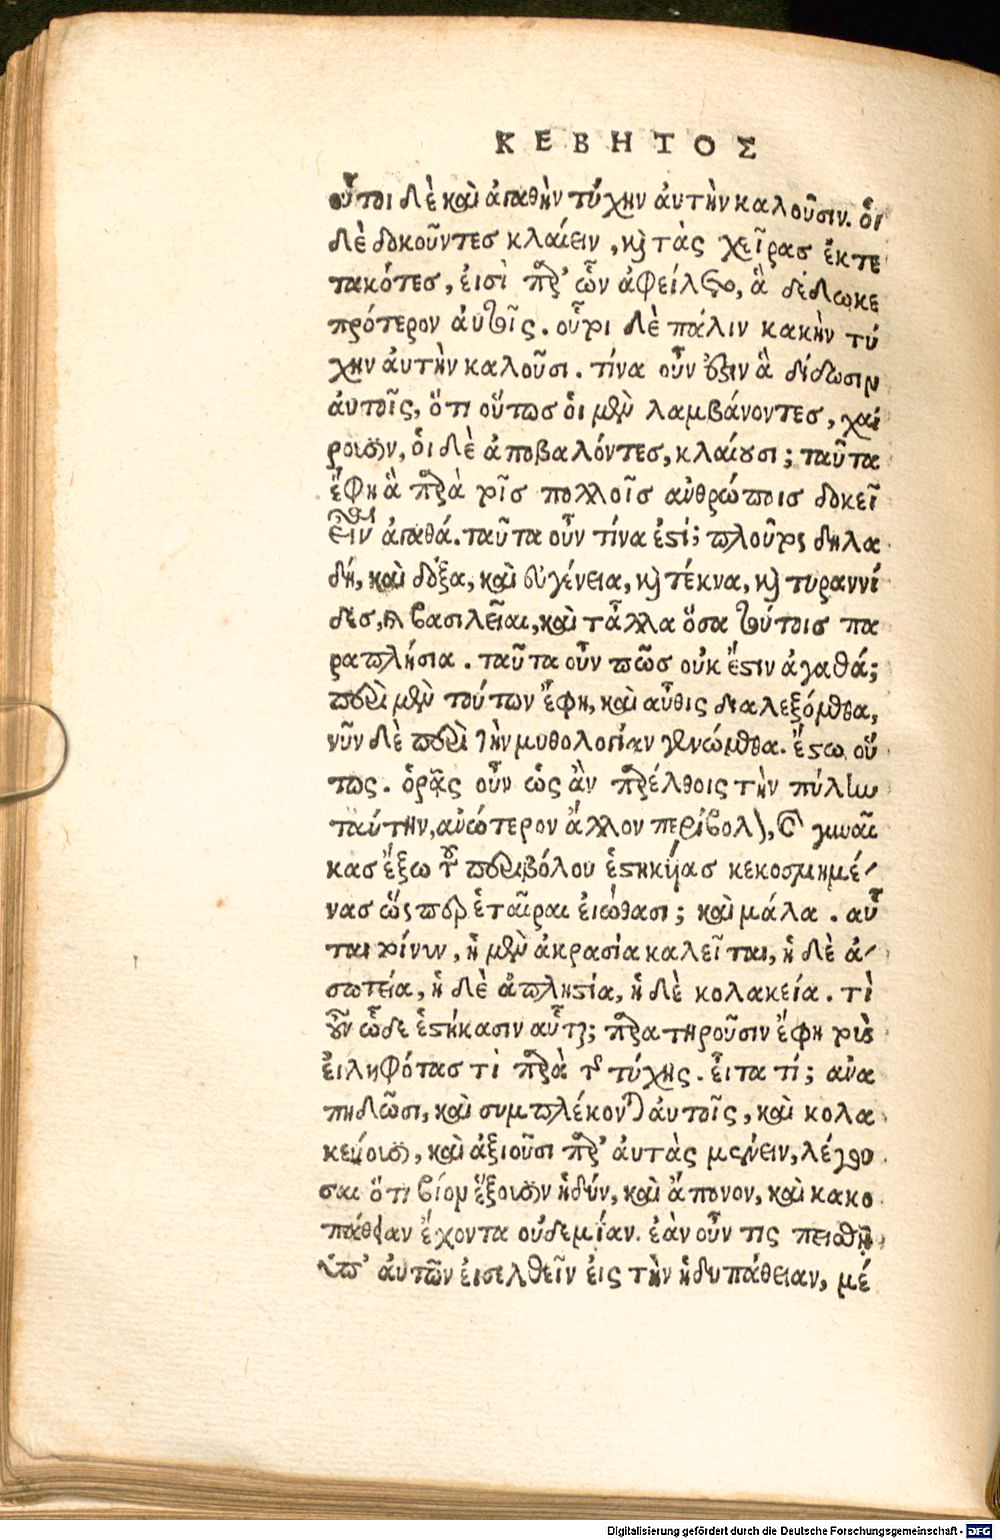 ΚΕΒΗΤΟΣ
οὗτοι δὲ καὶ ἀγαθὴν τύχην ἀυτὴν καλοῦσιν. ὁι
δὲ δοκοῦντες κλαίειν, καὶ τὰς χεῖρας ἐκτε
τακότες, ἐισὶ παρ’ ὧν ἀφείλετο, ἃ δέδωκε
πρότερον ἀυτοῖς. οὗτοι δὲ πάλιν κακὴν τύ
χην ἀυτὴν καλοῦσι. τίνα οὖν ἐστιν ἃ δίδωσιν
ἀυτοῖς, ὅτι οὕτως ὁι μὲν λαμβάνοντες, χαί
ρουσιν, ὁι δὲ ἀποβαλόντες, κλαίουσι; ταῦτα
ἔφη ἃ παρὰ τοῖς πολλοῖς ἀνθρώποις δοκεῖ
εἶναι ἀγαθά. ταῦτα οὖν τίνα ἐστί; πλοῦτος δηλα
δή, καὶ δόξα, καὶ ἐυγένεια, καὶ τέκνα, καὶ τυραννί
δες, καὶ βασιλεῖαι, καὶ τἆλλα ὅσα τούτοις πα
ραπλήσια. ταῦτα οὖν πῶς οὐκ ἔστιν ἀγαθά;
περὶ μὲν τούτων ἔφη, καὶ αὖθις διαλεξόμεθα,
νῦν δὲ περὶ τὴν μυθολογίαν γινώμεθα. ἔστω οὕ
τως. ὁρᾷς οὖν ὡς ἂν παρέλθοις τὴν πύλην
ταύτην, ἀνώτερον ἄλλον περίβολον, καὶ γυναῖ
κας ἔξω τοῦ περιβόλου ἑστηκυίας κεκοσμημέ
νας ὥσπερ ἑταῖραι ἐιώθασι; καὶ μάλα. αὗ
ται τοίνυν, ἡ μὲν ἀκρασία καλεῖται, ἡ δὲ ἀ
σωτεία, ἡ δὲ ἀπληστία, ἡ δὲ κολακεία. τὶ
οὖν ὧδε ἑστήκασιν αὗται; παρατηροῦσιν ἔφη τοὺς
ἐιληφότας τὶ παρὰ τῆς τύχης. ἔιτα τί; ἀνα
πηδῶσι, καὶ συμπλέκονται ἀυτοῖς, καὶ κολα
κεύουσι, καὶ ἀξιοῦσι παρ’ ἀυτὰς μένειν, λέγου
σαι ὅτι βίον ἕξουσιν ἡδύν, καὶ ἄπονον, καὶ κακο
πάθειαν ἔχοντα οὐδεμίαν. ἐὰν οὖν τις πεισθῇ
ὑπ’ ἀυτῶν ἐισελθεῖν ἐις τὴν ἡδυπάθειαν, μέ
Digitalisierung gefördert durch die Deutsche Forschungsgemeinschaft - DFG